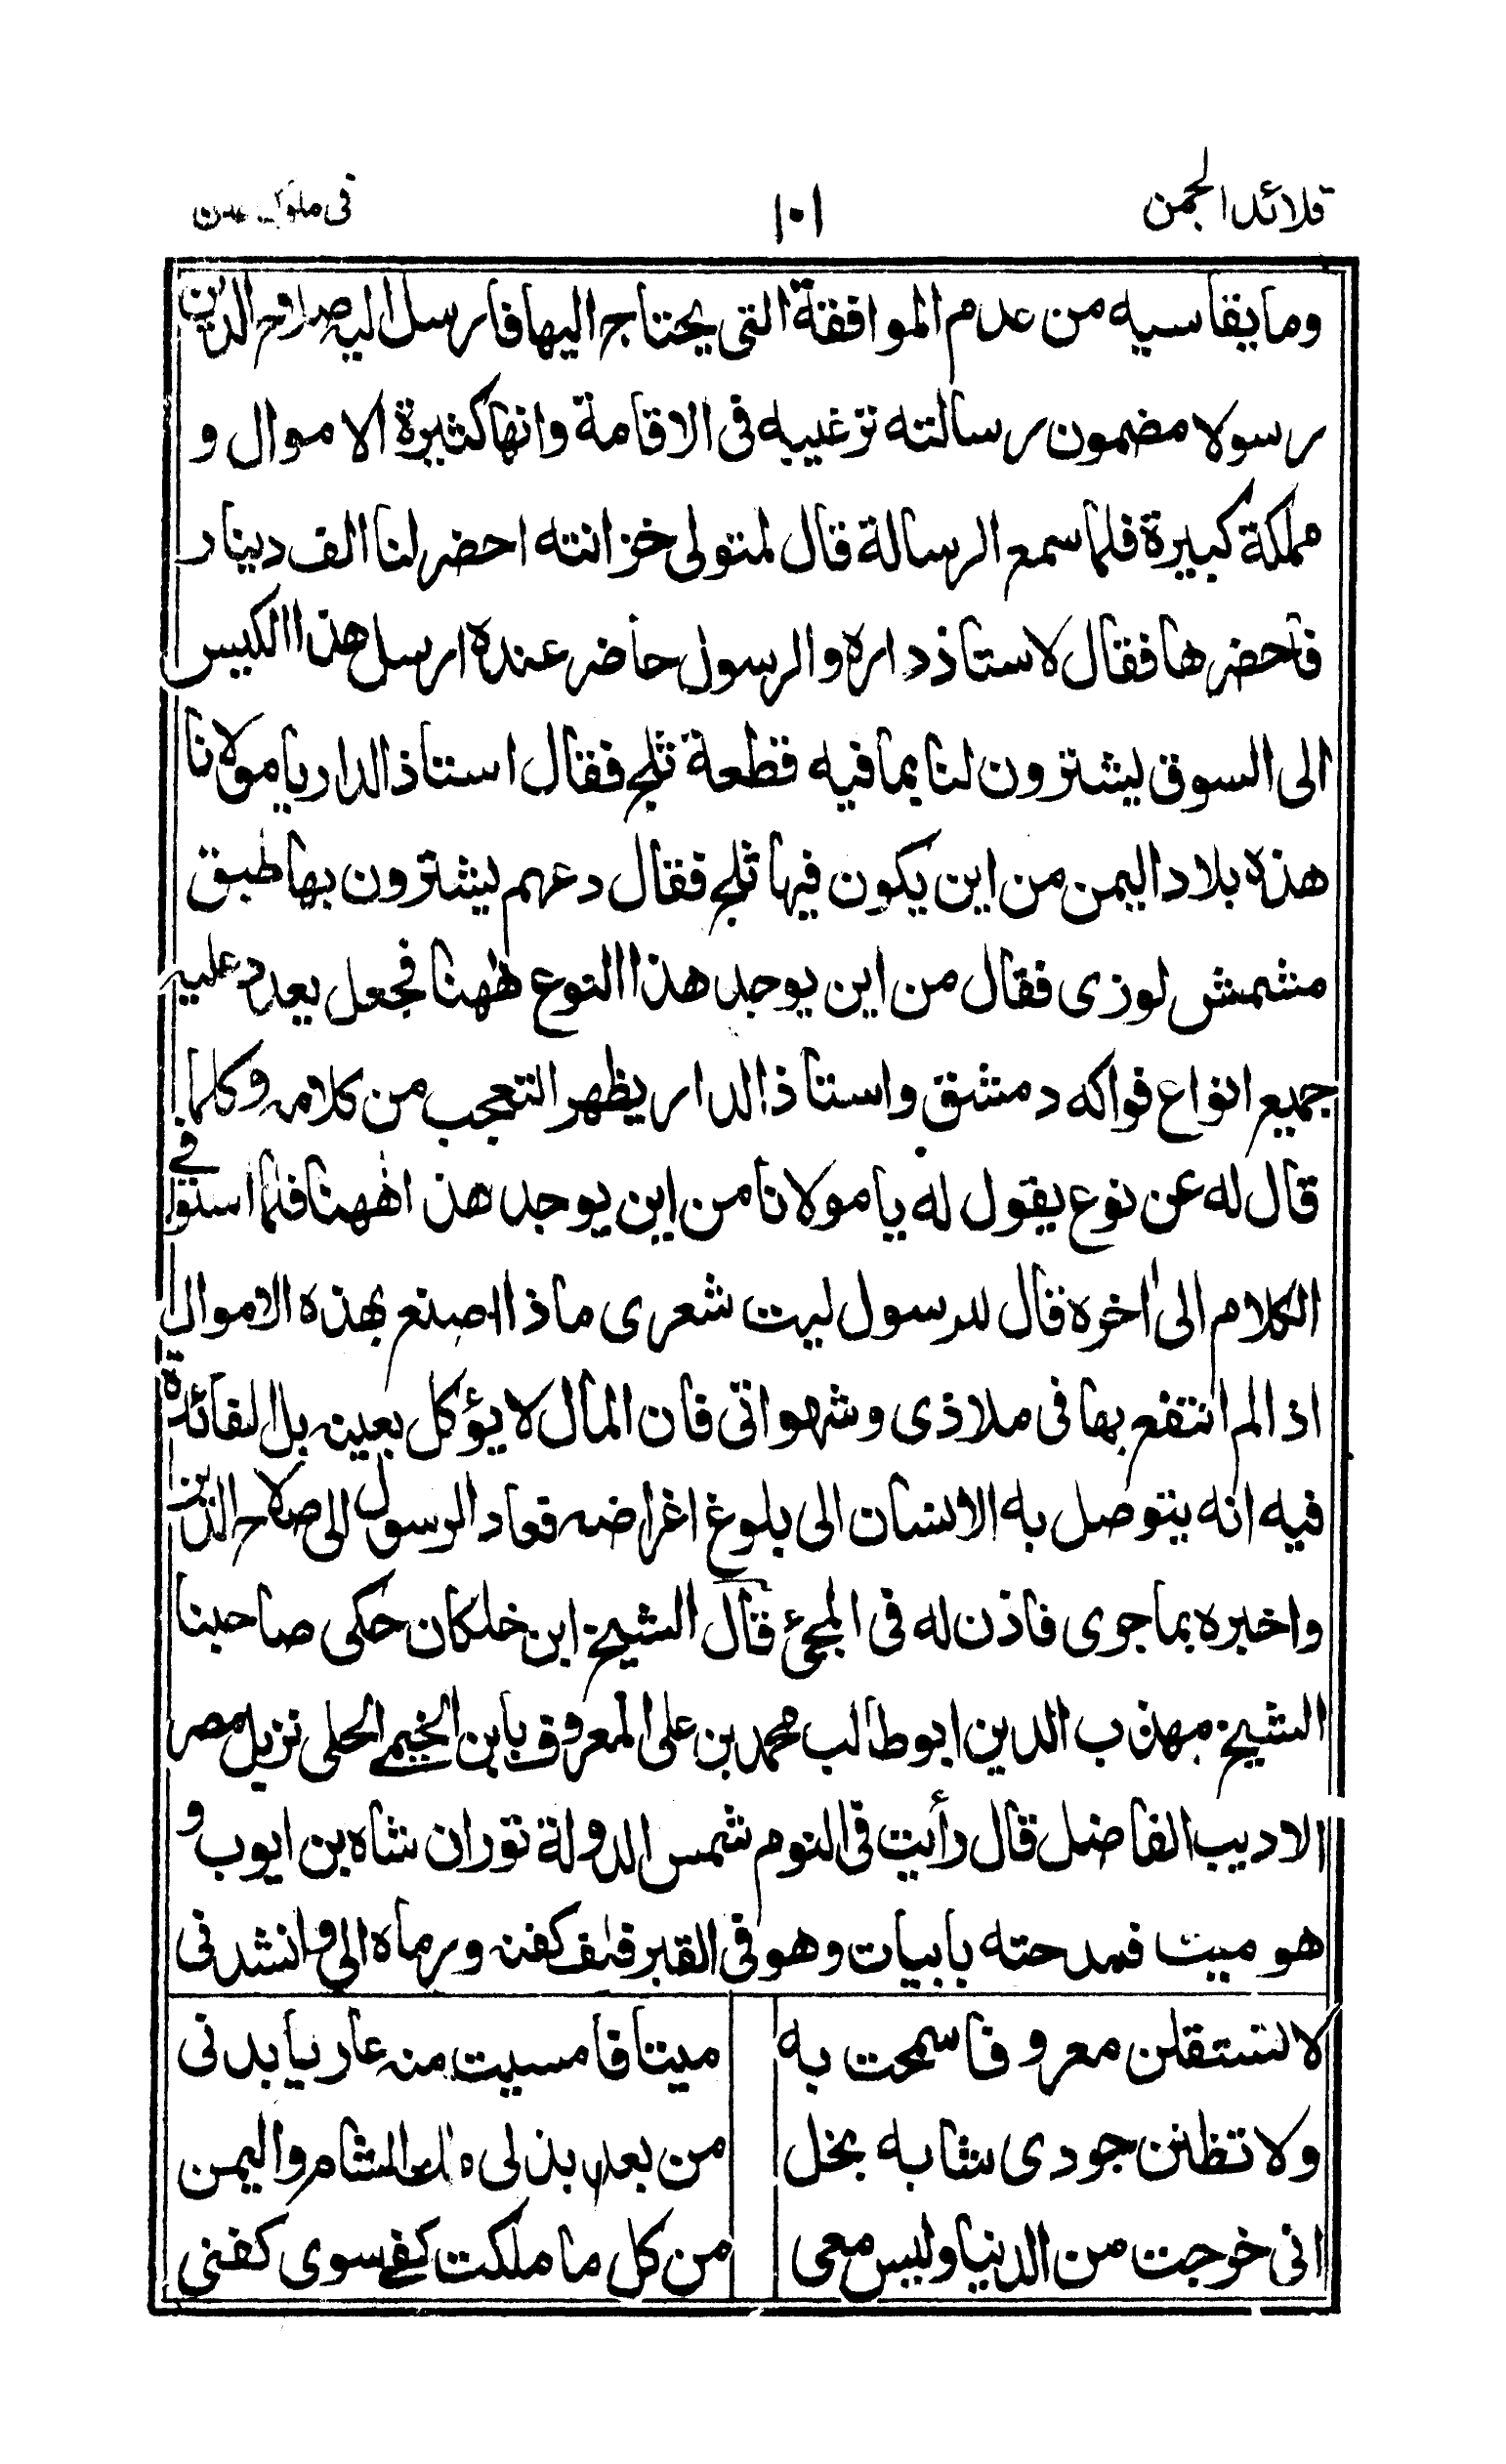 قلائد الجمن ١٠١ فى ملوك عدن
وما يقاسيه من عدم الموافقة التى يحتاج اليها فارسل اليه صلاح الدين
رسولا مضمون رسالته ترغيبه فى الاقامة وانها كثيرة الاموال و
مملكة كبيرة فلما سمع الرسالة قال لمتولى خزانته احضر لنا الف دينار
فأحضرها فقال لاستاذ داره والرسول حاضر عنده ارسل هذا الكيس
الى السوق يشترون لنا بما فيه قطعة ثلج فقال استاذ الدار يا مولانا
هذه بلاد اليمن من اين يكون فيها ثلج فقال دعهم يشترون بها طبق
مشمش لوزى فقال من اين يوجد هذا النوع ههنا فجعل يعدد عليه
جميع انواع فواكه دمشق واستاذ الدار يظهر التعجب من كلامه وكلما
قال له عن نوع يقول له يا مولانا من اين يوجد هذا ههنا فلما استوفى
الكلام الى اخره قال للرسول ليت شعرى ماذا اصنع بهذه الاموال
اذا لم انتفع بها فى ملاذى وشهواتى فان المال لا يؤكل بعينه بل الفائدة
فيه انه يتوصل به الانسان الى بلوغ اغراضه فعاد الرسول الى صلاح الدين
واخبره بما جرى فاذن له فى المجئ قال الشيخ ابن خلكان حكى صاحبنا
الشيخ مهذب الدين ابوطالب محمد بن على المعروف بابن الخيمى الحلى نزيل مصر
الاديب الفاضل قال رأيت فى النوم شمس الدولة توران شاه بن ايوب و
هو ميت فمدحته بابيات وهو فى القبر فلف كفنه ورماه الى وانشدنى
لا تستقلن معروفا سمحت به ميتا فامسيت منه عاريا بدنى
ولا تظنن جودى شابه بخل من بعد بذلى الشام واليمن
انى خرجت من الدنيا وليس معى من كل ما ملكت كفى سوى كفنى